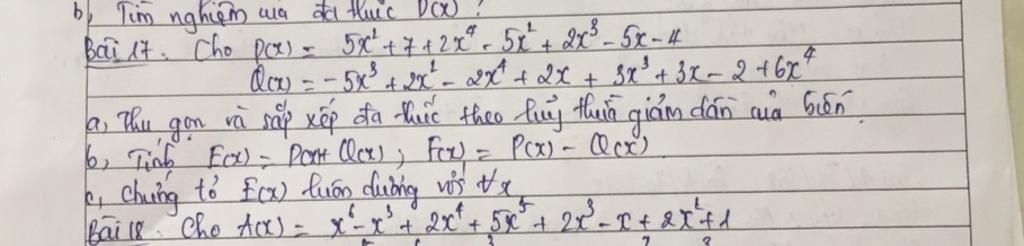 b, Tìm nghiệm của đa thức D(x).
Bài 17. Cho P(x) = 5x² + 7 + 2x⁴ - 5x² + 2x³ - 5x - 4
Q(x) = -5x³ + 2x² - 2x⁴ + 2x + 3x³ + 3x - 2 + 6x⁴
a, Thu gọn và sắp xếp đa thức theo luỹ thừa giảm dần của biến.
b, Tính E(x) = P(x) + Q(x) ; F(x) = P(x) - Q(x)
c, chứng tỏ E(x) luôn dương với ∀x
Bài 18. Cho A(x) = x⁶ - x³ + 2x⁴ + 5x⁵ + 2x³ - x + 2x² + 1